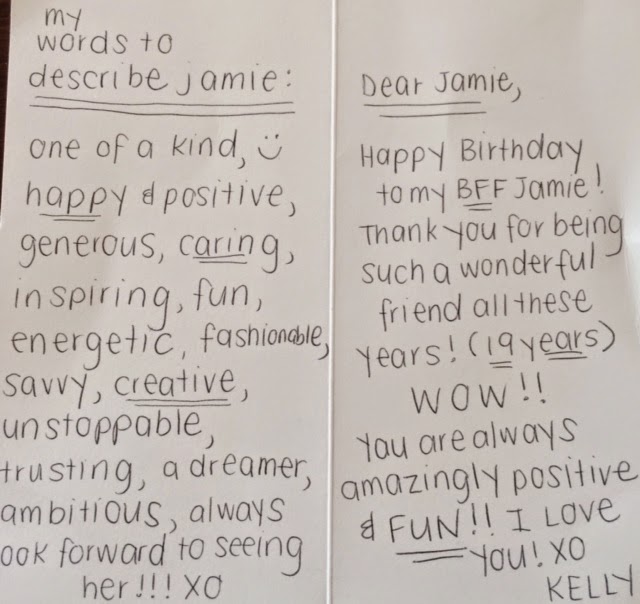 my
words to
describe jamie:
one of a kind, ☺
happy & positive,
generous, caring,
inspiring, fun,
energetic, fashionable,
savvy, creative,
unstoppable,
trusting, a dreamer,
ambitious, always
ook forward to seeing
her!!! XO
Dear Jamie,
Happy Birthday
to my BFF Jamie!
Thank you for being
such a wonderful
friend all these
years! (19 years)
WOW!!
You are always
amazingly positive
& FUN!! I LOVE
YOU! XO
KELLY